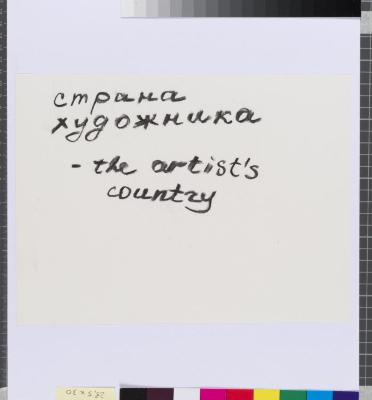 страна
художника
- the artist's
country
27,5 x 30